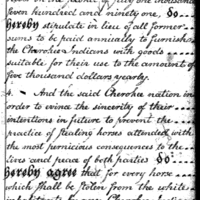 seven hundred and ninety one, Do
hereby stipulate in lieu of all former
sums to be paid annually to furnish
the Cherokee Indians with goods
suitable for their use to the amount of
five thousand dollars yearly.
4. And the said Cherokee nation in
order to evince the sincerity of their
intentions in future to prevent the
practice of stealing horses attended with
the most pernicious consequences to the
lives and peace of both parties Do
hereby agree that for every horse
which shall be stolen from the white